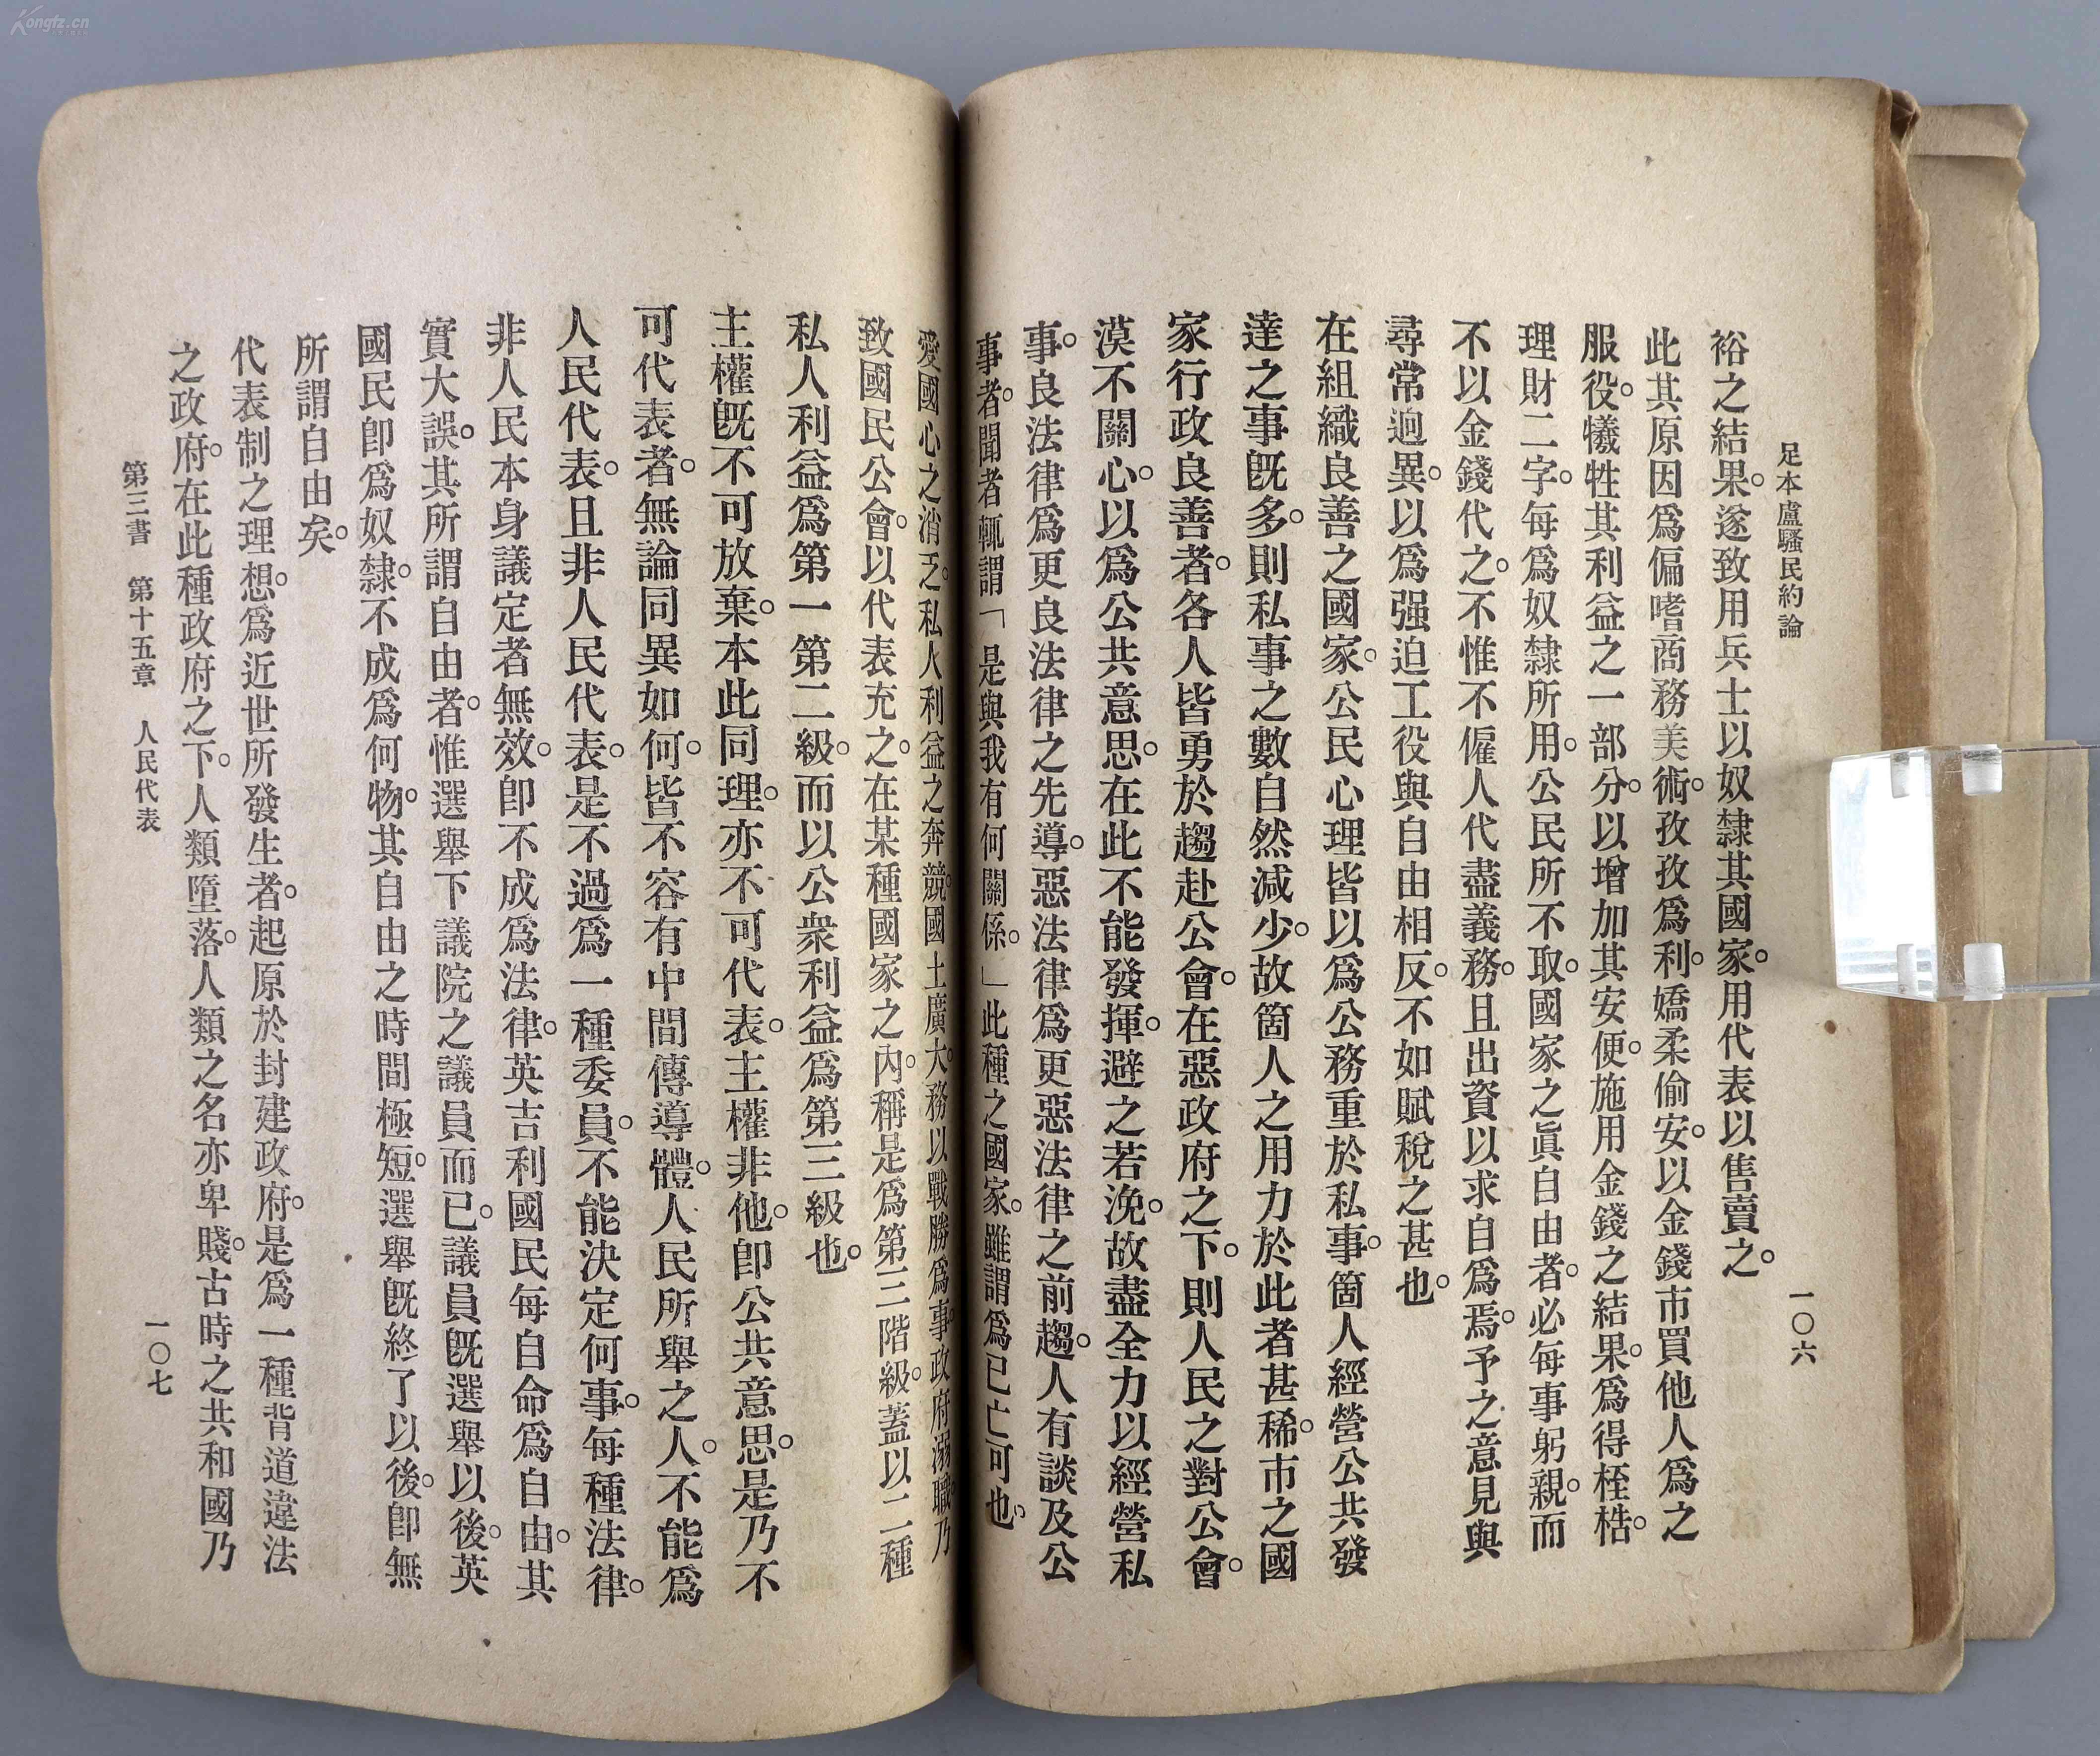 足本盧騷民約論
一〇六
裕之結果。遂致用兵士以奴隸其國家。用代表以售賣之。
此其原因爲偏嗜商務美術。孜孜爲利。嬌柔偷安。以金錢市買他人爲之
服役。犧牲其利益之一部分。以增加其安便。施用金錢之結果。爲得桎梏。
理財二字。每爲奴隸所用。公民所不取。國家之眞自由者。必每事躬親。而
不以金錢代之。不惟不僱人代盡義務。且出資以求自爲焉。予之意見與
尋常逈異。以爲强迫工役與自由相反。不如賦稅之甚也。
在組織良善之國家。公民心理皆以爲公務重於私事。箇人經營公共發
達之事旣多。則私事之數自然減少。故箇人之用力於此者甚稀。市之國
家行政良善者。各人皆勇於趨赴公會。在惡政府之下。則人民之對公會。
漠不關心。以爲公共意思。在此不能發揮。避之若浼。故盡全力以經營私
事。良法律爲更良法律之先導。惡法律爲更惡法律之前趨。人有談及公
事者。聞者輒謂「是與我有何關係。」此種之國家。雖謂爲已亡可也。
愛國心之消乏。私人利益之奔競。國土廣大。務以戰勝爲事。政府溺職。乃
致國民公會。以代表充之。在某種國家之內。稱是爲第三階級。蓋以二種
私人利益爲第一第二級。而以公衆利益爲第三級也。
主權旣不可放棄。本此同理。亦不可代表。主權非他。卽公共意思。是乃不
可代表者。無論同異如何。皆不容有中間傳導體。人民所舉之人。不能爲
人民代表。且非人民代表。是不過爲一種委員。不能決定何事。每種法律。
非人民本身議定者無效。卽不成爲法律。英吉利國民每自命爲自由。其
實大誤。其所謂自由者。惟選舉下議院之議員而已。議員旣選舉以後。英
國民卽爲奴隸。不成爲何物。其自由之時間極短。選舉旣終了以後。卽無
所謂自由矣。
代表制之理想。爲近世所發生者。起原於封建政府。是爲一種背道違法
之政府。在此種政府之下。人類墮落。人類之名亦卑賤。古時之共和國乃
第三書　第十五章　人民代表
一〇七
Kongfz.cn